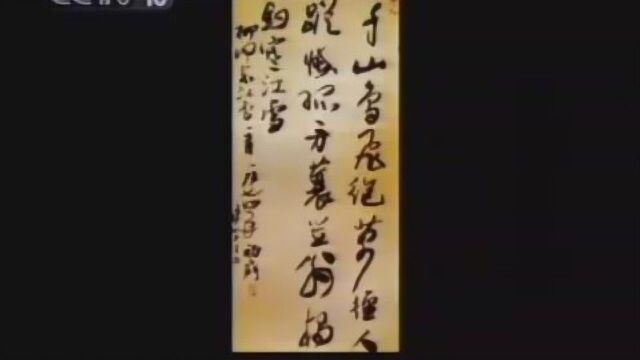 CCTV-10
千山鳥飛絕萬徑人
蹤滅孤舟蓑笠翁獨
釣寒江雪
柳河東江雪一首